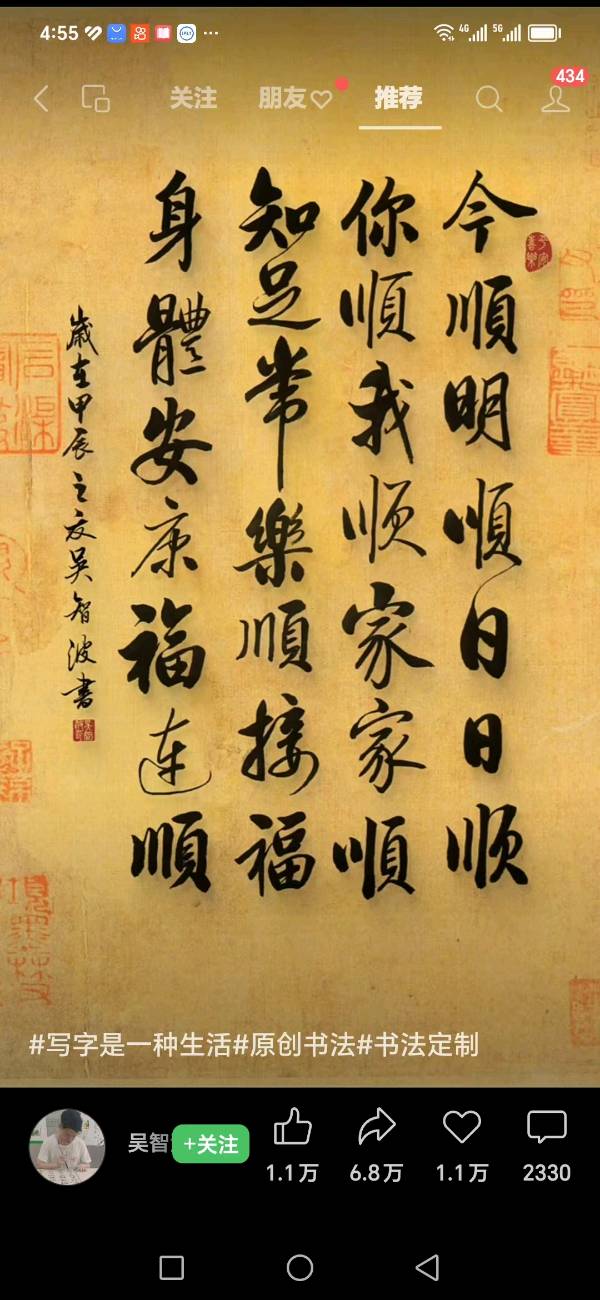 4:55
4G
5G
434
关注
朋友
推荐
今順明順日日顺
你順我顺家家順
知足常樂順接福
身體安康福连順
歲在甲辰之夏吴智波書
#写字是一种生活#原创书法#书法定制
吴智
+关注
1.1万
6.8万
1.1万
2330